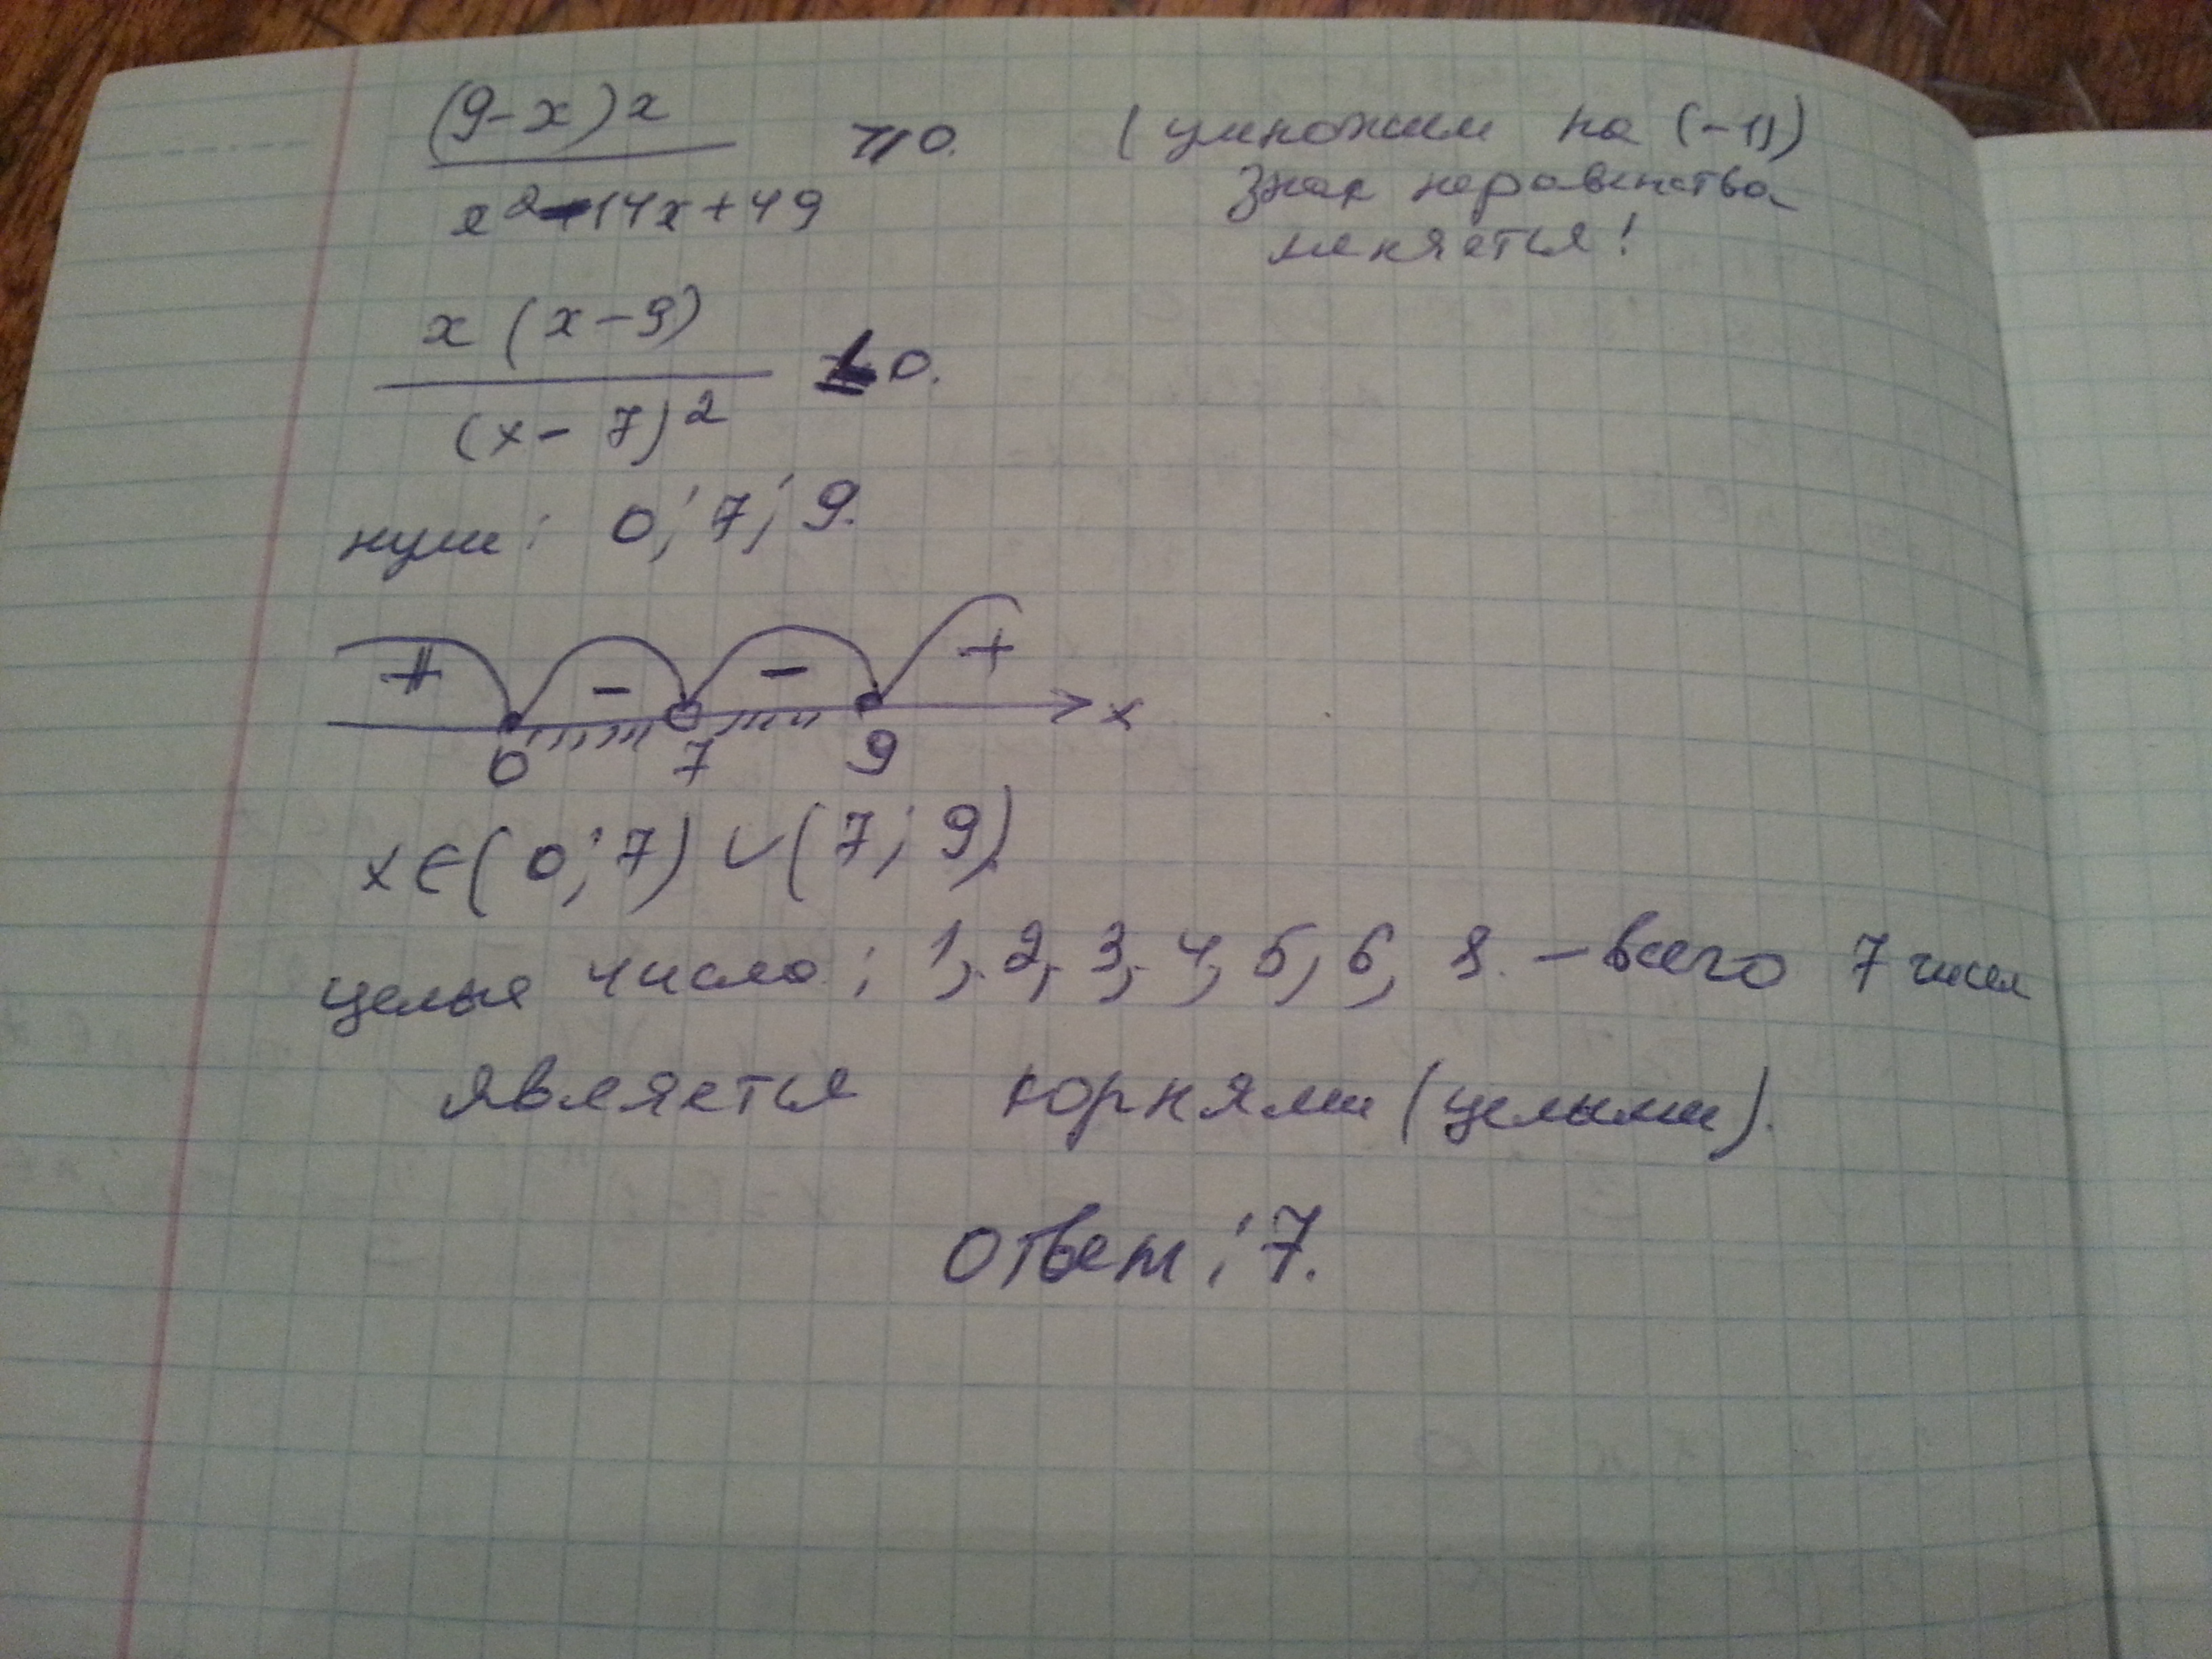 (9-x)x / x²-14x+49 ⩾ 0. (умножим на (-1))
Знак неравенства
меняется!
x(x-9) / (x-7)² ≤ 0.
нули: 0; 7; 9.
+ - - +
0 7 9 x
x∈(0;7)∪(7;9).
целые число: 1, 2, 3, 4, 5, 6, 8. - всего 7 чисел
является корнями (целыми).
Ответ: 7.